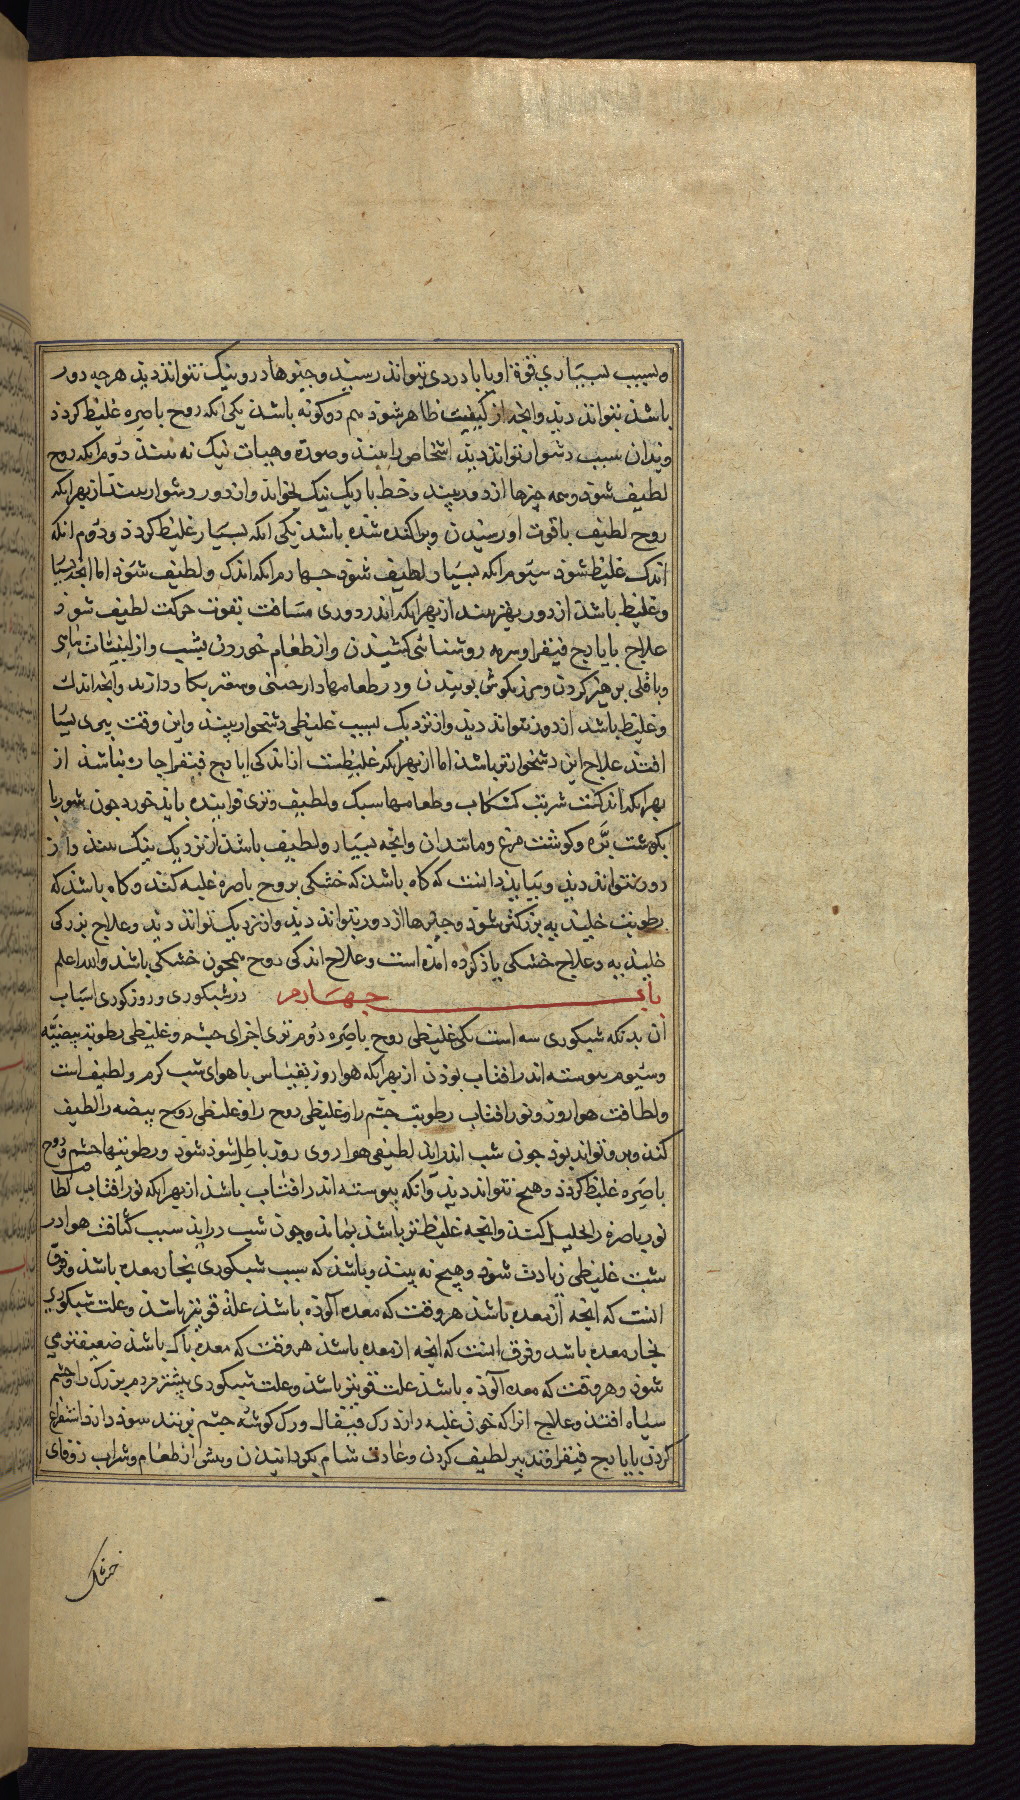 و بسبب بسیاری قوة او یا با دردی بتواند رسید وچیزها در و نیک نتواند دید هرچه دور
باشد نتواند دید وانچه از کیفیت ظاهر شود هم دو کونه باشد یکی انکه روح باصره غلیظ کردد
وبدان سبب دشوار تواند دید اشخاص را بیند وصورة وهیات نیک نه بیند دوم انکه روح
لطیف شود وهمه چیزها از دور بیند وخط باریک نیک بخواند واز دور دشوار بیند از بهر انکه
روح لطیف باقوت اورسیدن وپراکنده شده باشد یکی انکه بسیار غلیظ کردد ودوم انکه
اندک غلیظ شود سیوم انکه بسیار لطیف شود چهارم انکه اندک ولطیف شود اما انچه بسیا
وغلیظ باشد از دور بهتر بیند از بهر انکه اندر دوری مسافت بقوت حرکت لطیف شود
علاج بایارج فیقرا وسرمه روشنائی کشیدن واز طعام خوردن بشب واز لبنیات ماهی
وباقلی پرهیز کردن ومرزنکوش بوییدن ودر طعامها دارچینی وسعتر بکار دارند وانچه اندک
وغلیظ باشد از دور نتواند دید واز نزدیک بسبب غلیظی دشخوار بیند واین وقت پیری بسیا
افتد علاج این دشخوارتر باشد اما از بهر انکه غلیظست از اندکی ایارج فیقرا چاره نباشد از
بهر انکه اندکست شربت کشکاب وطعامها سبک ولطیف وتری فزاینده باید خورد چون شوربا
بکوشت بره وکوشت مرغ ومانند ان وانچه بسیار ولطیف باشد از نزدیک نیک بیند واز
دور نتواند دید وبباید دانست که کاه باشد که خشکی بر روح باصره غلبه کند وکاه باشد که
رطوبت جلیدیه بزرکتر شود وچیزها از دور نتواند دید واز نزدیک تواند دید وعلاج بزرکی
جلیدیه وعلاج خشکی یاد کرده امده است وعلاج اندکی روح همچون خشکی باشد والله اعلم
باب چهارم در شبکوری وروزکوری اسباب
ان بدانکه شبکوری سه است یکی غلیظی روح باصره دوم تری اجزای چشم وغلیظی رطوبت بیضیه
وسیوم پیوسته اندر افتاب بودن از بهر انکه هوا روز بقیاس با هوای شب کرم ولطیف است
ولطافت هوا روز ونور افتاب رطوبت چشم را وغلیظی روح را وغلیظی روح بیضه را لطیف
کند وبرو تواند بود چون شب اندر اید لطیفی هوا روی روز باطل شود شود ورطوبتها چشم وروح
باصره غلیظ کردد وهیچ نتواند دید وانکه پیوسته اندر افتاب باشد از بهر انکه نور افتاب لطا
نور باصره را تحلیل کند وانچه غلیظ تر باشد بماند وچون شب در اید سبب کثافت هوا در
شب غلیظی زیادت شود وهیچ نه بیند وباشد که سبب شبکوری بخار معده باشد وفرق
انست که انچه از معده باشد هر وقت که معده الوده باشد علة قویتر باشد وعلت شبکوری
بخار معده باشد وفرق انست که انچه از معده باشد هر وقت که معده پاک باشد ضعیفتر می
شود وهر وقت که معده الوده باشد علت قویتر باشد وعلت شبکوری بیشتر مردم بزرک را وچشم
سیاه افتد وعلاج انرا که خون غلبه دارد رک قیفال ورک کوشه چشم بزنند سود دارد استفراغ
کردن بایارج فیقرا وتدبیر لطیف کردن وعادت شام بکردانیدن وپیش از طعام وشراب زوفای
خشک